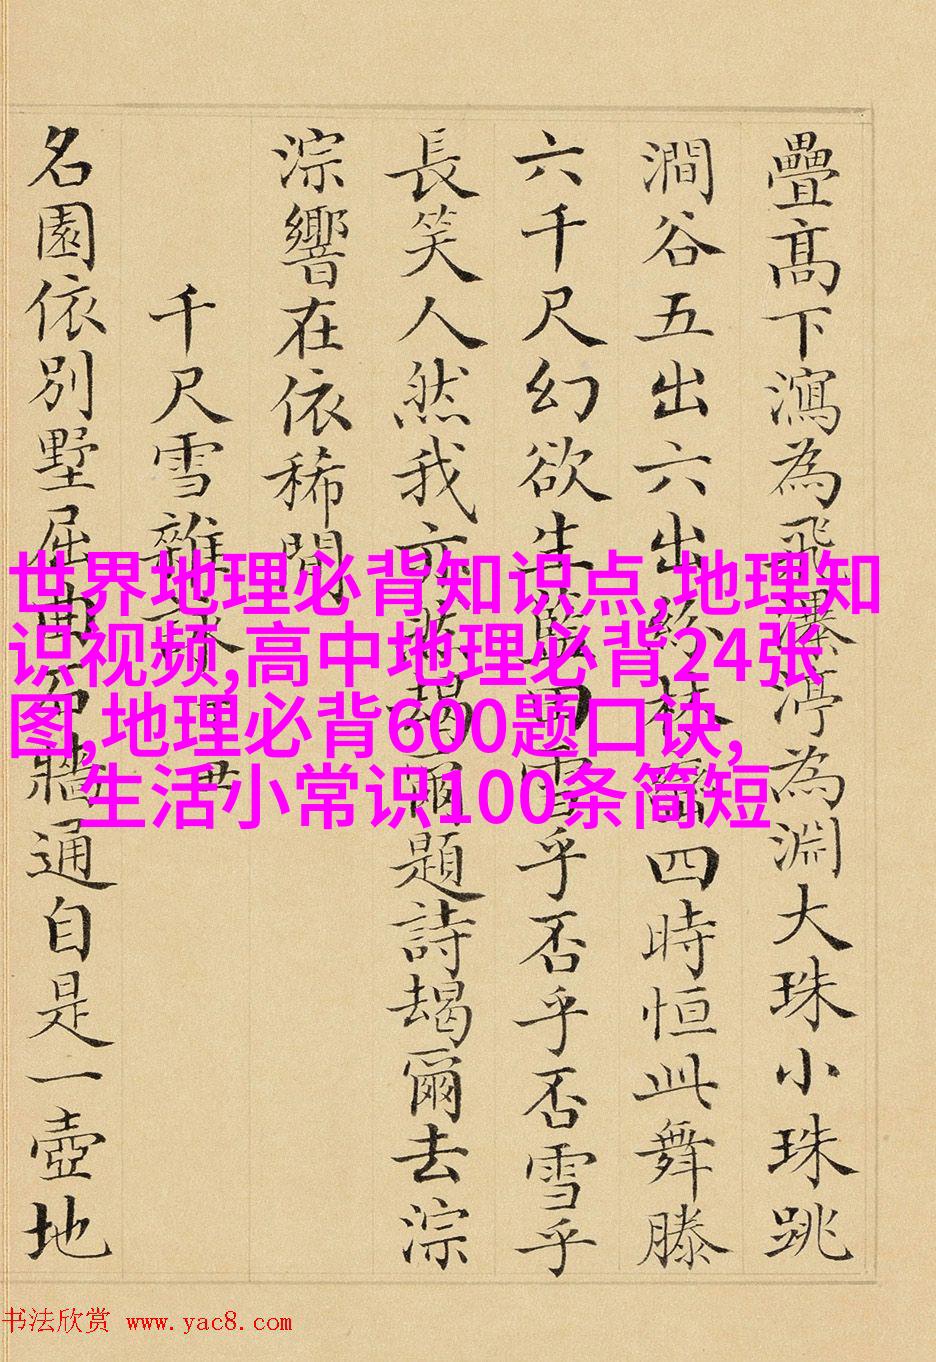 疊高下瀉為飛瀑渟為淵大珠小珠跳
澗谷五出六出四時恒此舞滕
六千尺幻欲生雪乎否乎否雪乎
長笑人然我亦題詩朅爾去淙
淙響在依稀間
千尺雪雜詠
名園依別墅屈曲牆通自是一壺地
世界地理必背知识点,地理知
识视频,高中地理必背24张
图,地理必背600题口诀,
生活小常识100条简短
书法欣赏 www.yac8.com